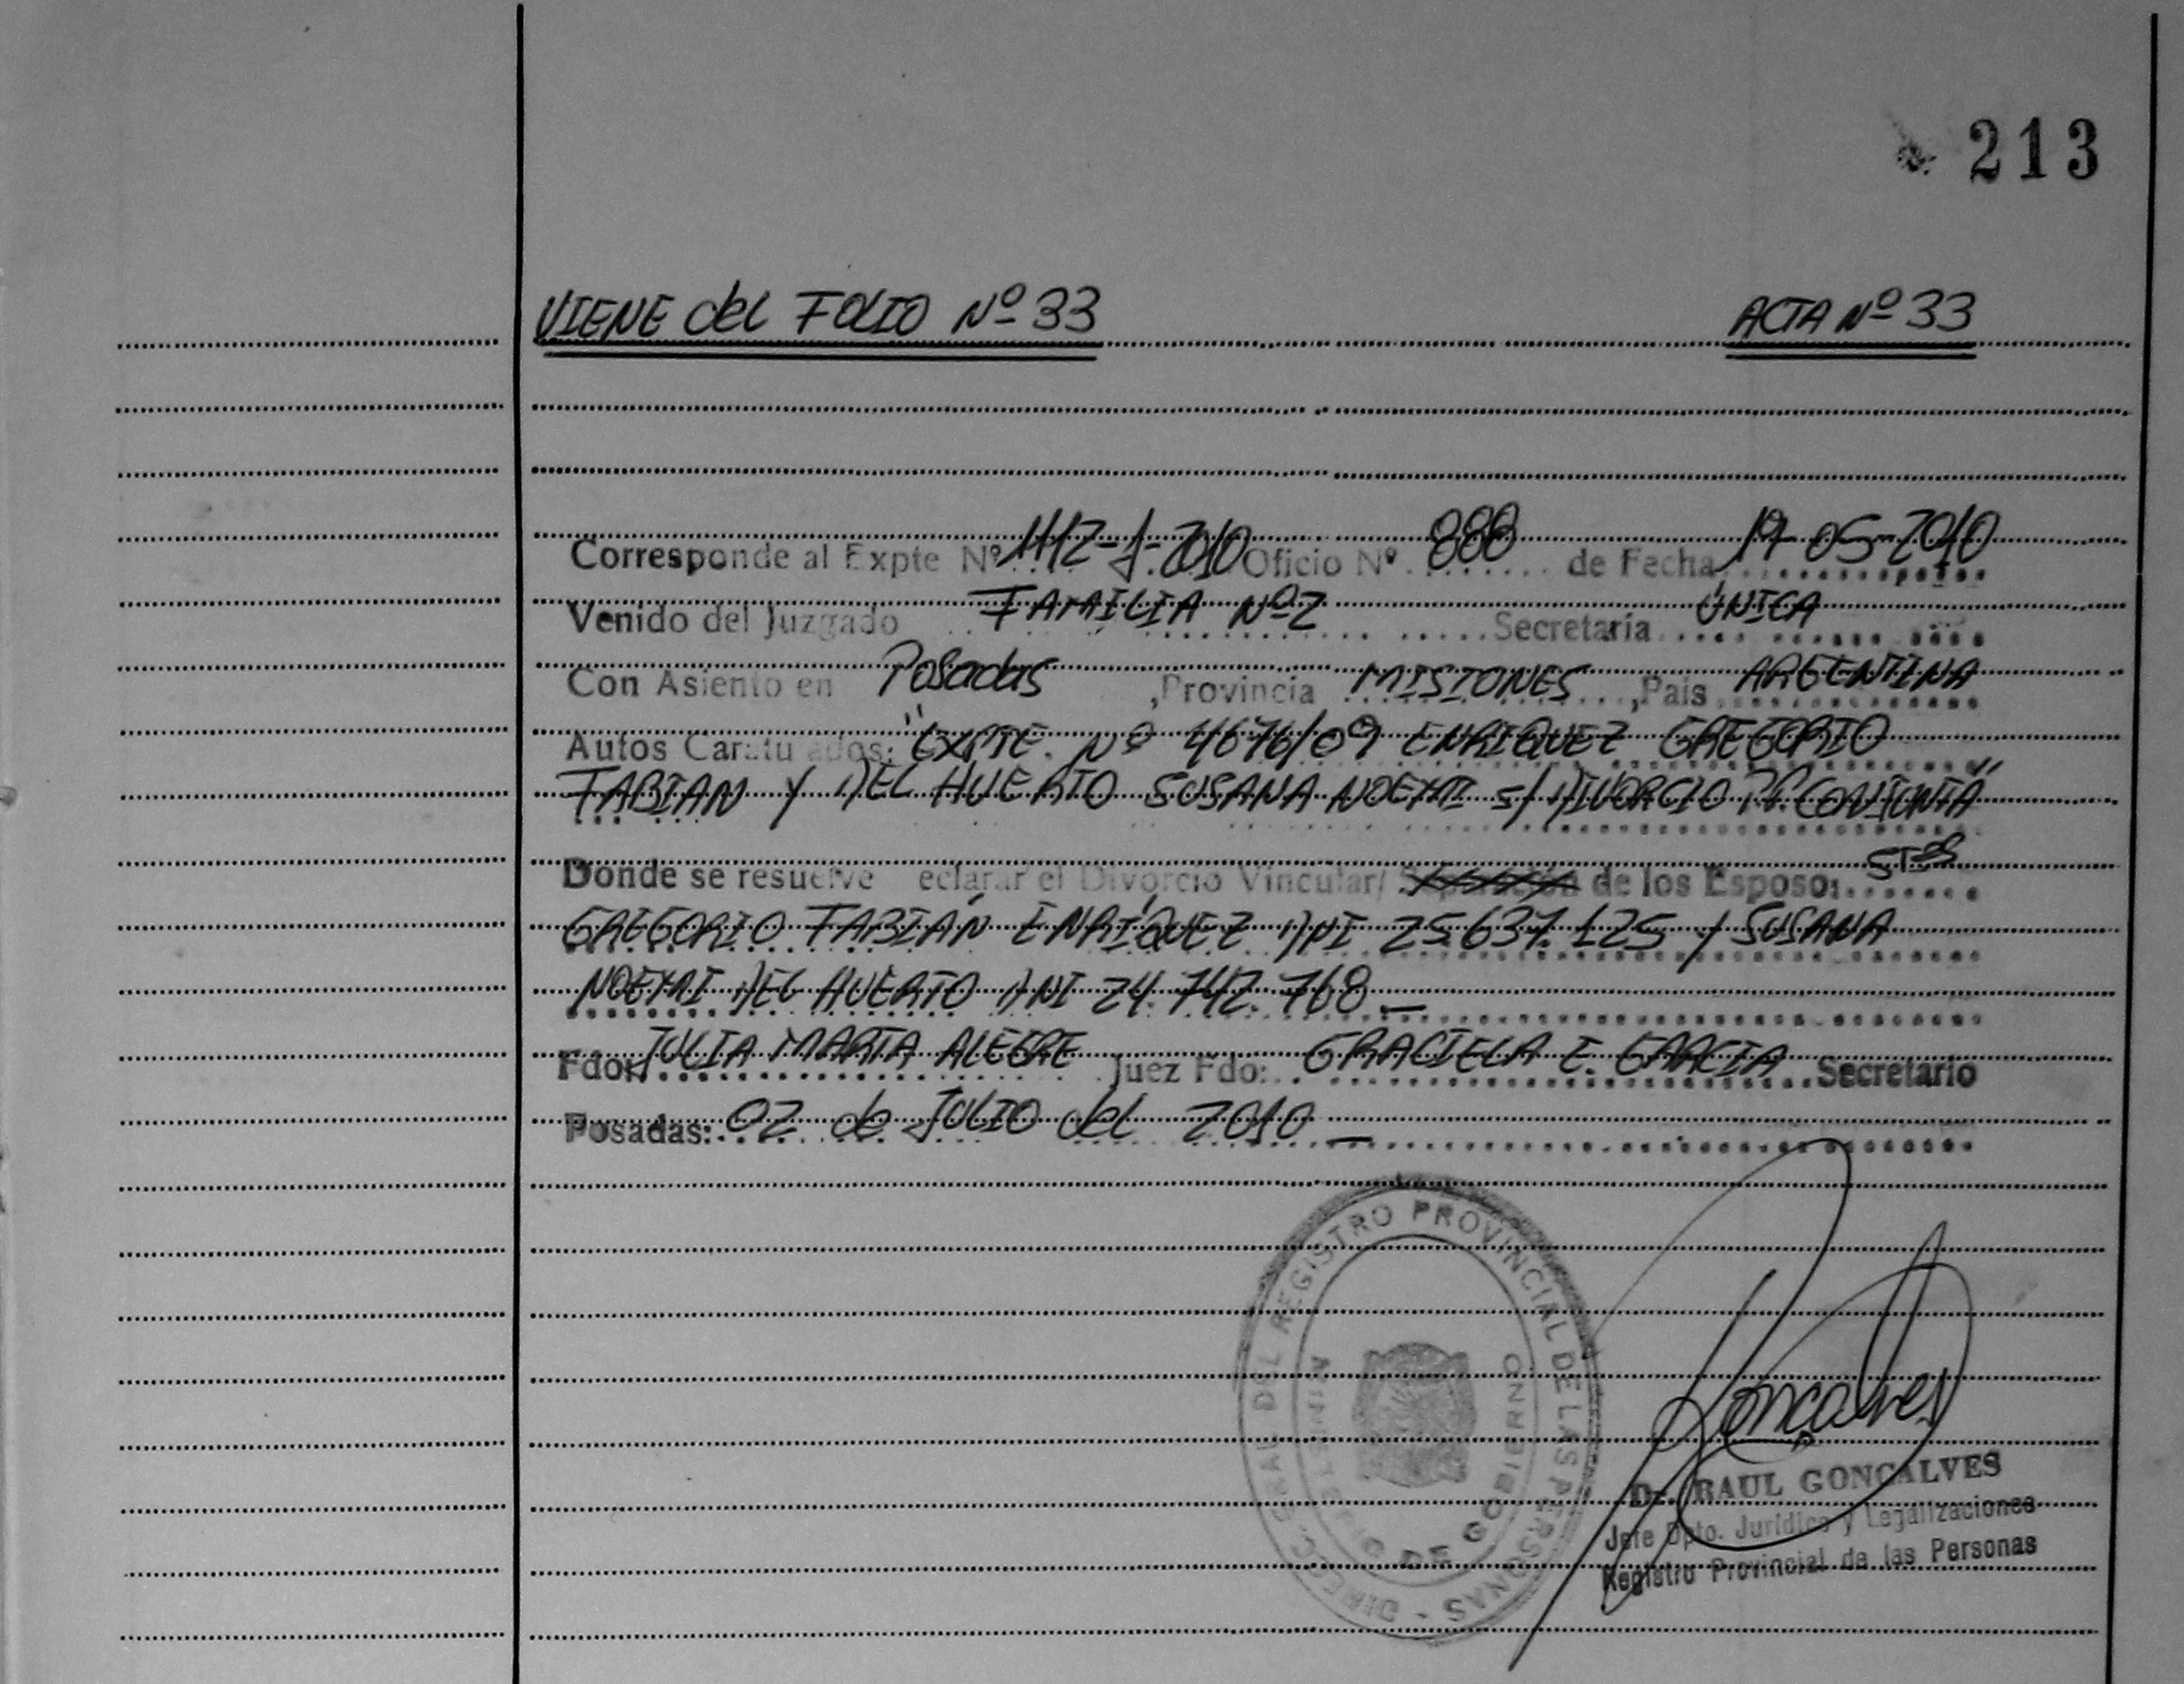 213
VIENE del FOLIO Nº 33 ACTA Nº 33
Corresponde al Expte Nº 1112-J-2010 Oficio Nº 888 de Fecha 19-05-2010
Venido del Juzgado FAMILIA Nº 2 Secretaria ÚNICA
Con Asiento en Posadas, Provincia MISIONES, Pais ARGENTINA
Autos Caratulados: "EXPTE. Nº 4676/09 ENRIQUEZ GREGORIO
FABIAN Y DEL HUERTO SUSANA NOEMI S/ DIVORCIO P.P. CONJUNTA"
Donde se resuelve eclarar el Divorcio Vincular/ Separación de los Esposos STES
GREGORIO FABIÁN ENRÍQUEZ DNI 25.637.125 Y SUSANA
NOEMI DEL HUERTO DNI 24.742.768 —
Fdo: JULIA MARTA ALEGRE Juez Fdo: GRACIELA E. GARCIA Secretario
Posadas: 02 de JULIO del 2010 —
DIRECC. GRAL. DEL REGISTRO PROVINCIAL DE LAS PERSONAS -
MINISTERIO DE GOBIERNO
Goncalves
Dr. RAUL GONCALVES
Jefe Dpto. Jurídico y Legalizaciones
Registro Provincial de las Personas